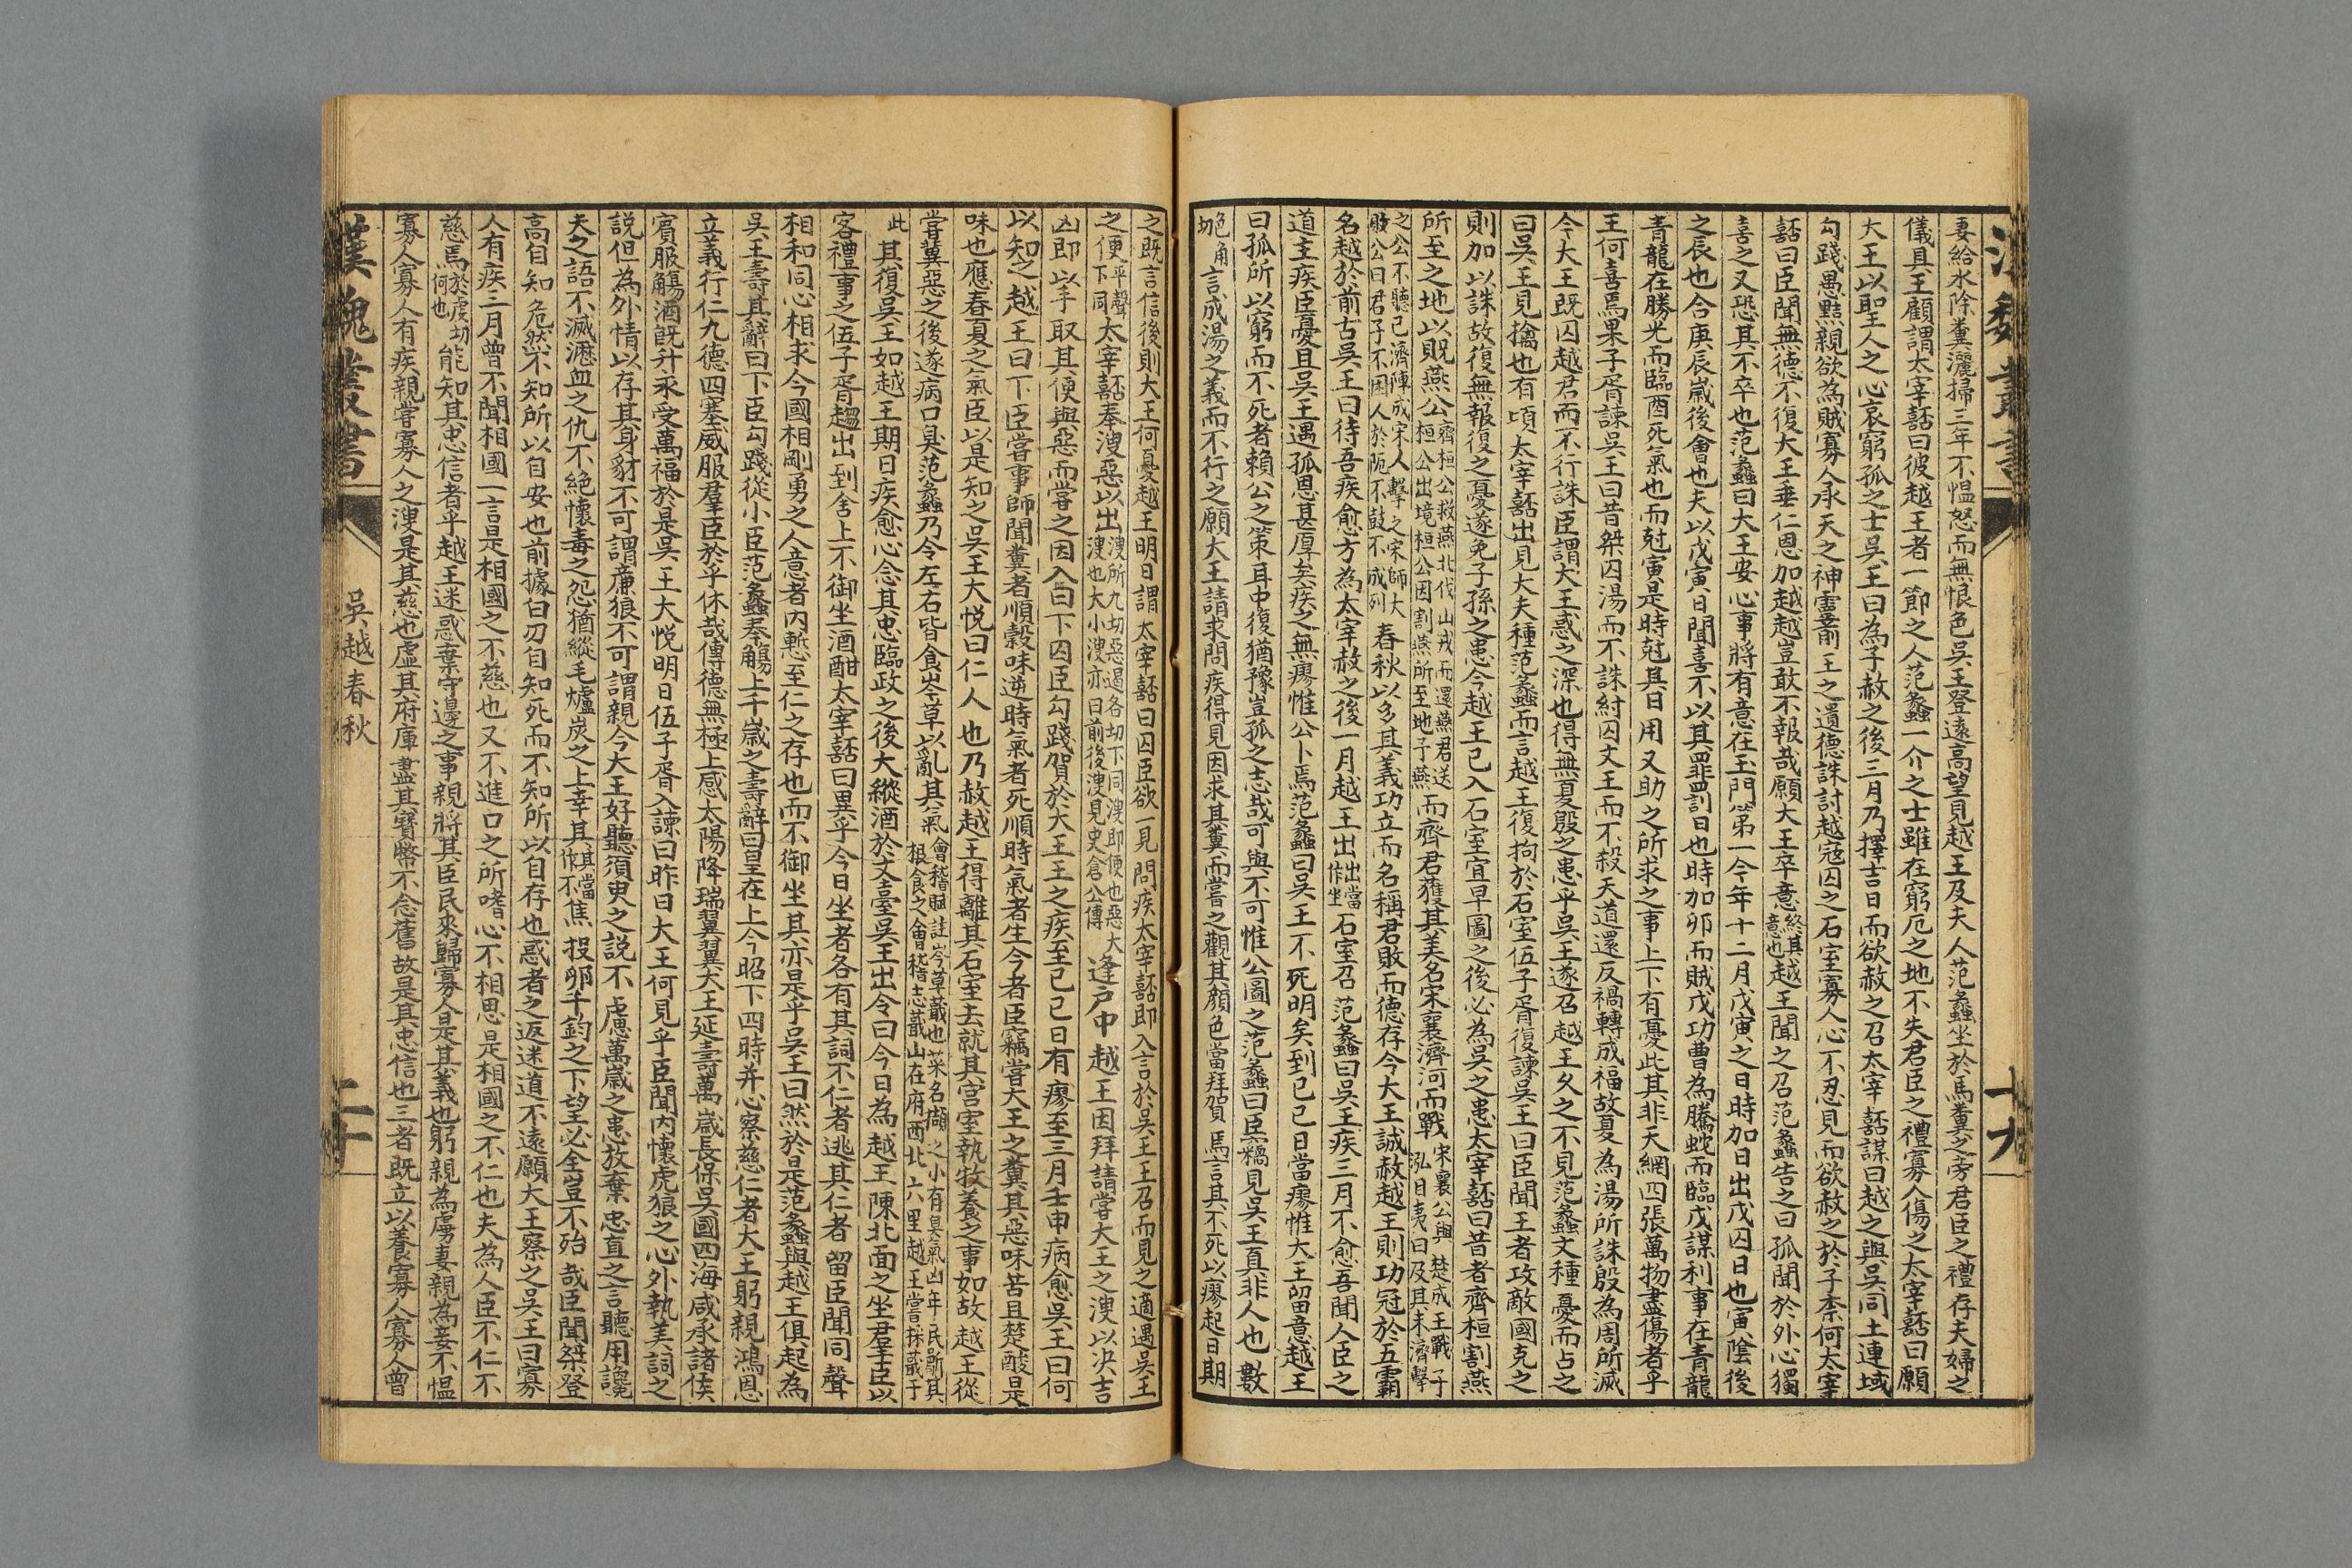 漢魏叢書
十九
妻給水除糞灑掃三年不愠怒而無恨色吳王登遠高望見越王及夫人范蠡坐於馬糞之旁君臣之禮存夫婦之
儀具王顧謂太宰嚭曰彼越王者一節之人范蠡一介之士雖在窮厄之地不失君臣之禮寡人傷之太宰嚭曰願
大王以聖人之心哀窮孤之士吳王曰為子赦之後三月乃擇吉日而欲赦之召太宰嚭謀曰越之與吳同土連域
勾踐愚黠親欲為賊寡人承天之神靈前王之遺德誅討越寇囚之石室寡人心不忍見而欲赦之於子柰何太宰
嚭曰臣聞無德不復大王垂仁恩加越越豈敢不報哉願大王卒意終其意也越王聞之召范蠡告之曰孤聞於外心獨
喜之又恐其不卒也范蠡曰大王安心事將有意在玉門第一今年十二月戊寅之日時加日出戊囚日也寅陰後
之辰也合庚辰歲後會也夫以戊寅日聞喜不以其罪罰日也時加卯而賊戊功曹為騰蛇而臨戊謀利事在青龍
青龍在勝光而臨酉死氣也而尅寅是時尅其日用又助之所求之事上下有憂此其非天網四張萬物盡傷者乎
王何喜焉果子胥諫吳王曰昔桀囚湯而不誅紂囚文王而不殺天道還反禍轉成福故夏為湯所誅殷為周所滅
今大王既囚越君而不行誅臣謂大王惑之深也得無夏殷之患乎吳王遂召越王久之不見范蠡文種憂而占之
曰吳王見擒也有頃太宰嚭出見大夫種范蠡而言越王復拘於石室伍子胥復諫吳王曰臣聞王者攻敵國克之
則加以誅故復無報復之憂遂免子孫之患今越王已入石室宜早圖之後必為吳之患太宰嚭曰昔者齊桓割燕
所至之地以貺燕公齊桓公救燕北伐山戎而還燕君送桓公出境桓公因割燕所至地予燕而齊君獲其美名宋襄濟河而戰宋襄公與楚成王戰于泓目夷曰及其未濟擊
之公不聽已濟陣成宋人擊之宋師大敗公曰君子不困人於阨不鼓不成列春秋以多其義功立而名稱君敗而德存今大王誠赦越王則功冠於五霸
名越於前古吳王曰待吾疾愈方為太宰赦之後一月越王出出當作坐石室召范蠡曰吳王疾三月不愈吾聞人臣之
道主疾臣憂且吳王遇孤恩甚厚矣疾之無瘳惟公卜焉范蠡曰吳王不死明矣到己巳日當瘳惟大王留意越王
曰孤所以窮而不死者賴公之策耳中復猶豫豈孤之志哉可與不可惟公圖之范蠡曰臣竊見吳王真非人也數
色角切言成湯之義而不行之願大王請求問疾得見因求其糞而嘗之觀其顏色當拜賀焉言其不死以瘳起日期
之既言信後則大王何憂越王明日謂太宰嚭曰囚臣欲一見問疾太宰嚭即入言於吳王王召而見之適遇吳王
之便平聲下同太宰嚭奉溲惡以出溲所九切惡遏各切下同溲即便也惡大溲也大小溲亦曰前後溲見史倉公傳逢戶中越王因拜請嘗大王之溲以決吉
凶即以手取其便與惡而嘗之因入曰下囚臣勾踐賀於大王王之疾至己巳日有瘳至三月壬申病愈吳王曰何
以知之越王曰下臣嘗事師聞糞者順穀味逆時氣者死順時氣者生今者臣竊嘗大王之糞其惡味苦且楚酸是
味也應春夏之氣臣以是知之吳王大悅曰仁人也乃赦越王得離其石室去就其宮室執牧養之事如故越王從
嘗糞惡之後遂病口臭范蠡乃令左右皆食岑草以亂其氣會稽賦註岑草蕺也菜名擷之小有臭氣凶年民斸其根食之會稽志蕺山在府西北六里越王嘗採蕺于
此其復吳王如越王期日疾愈心念其忠臨政之後大縱酒於文臺吳王出令曰今日為越王陳北面之坐群臣以
客禮事之伍子胥趨出到舍上不御坐酒酣太宰嚭曰異乎今日坐者各有其詞不仁者逃其仁者留臣聞同聲
相和同心相求今國相剛勇之人意者內慙至仁之存也而不御坐其亦是乎吳王曰然於是范蠡與越王俱起為
吳王壽其辭曰下臣勾踐從小臣范蠡奉觴上千歲之壽辭曰皇在上令昭下四時并心察慈仁者大王躬親鴻恩
立義行仁九德四塞威服羣臣於乎休哉傳德無極上感太陽降瑞翼翼大王延壽萬歲長保吳國四海咸承諸侯
賓服觴酒既升永受萬福於是吳王大悅明日伍子胥入諫曰昨日大王何見乎臣聞內懷虎狼之心外執美詞之
說但為外情以存其身豺不可謂廉狼不可謂親今大王好聽須臾之說不慮萬歲之患放棄忠直之言聽用讒
夫之語不滅瀝血之仇不絕懷毒之怨猶縱毛爐炭之上幸其其當作不焦投卵千鈞之下望必全豈不殆哉臣聞桀登
高自知危然不知所以自安也前據白刃自知死而不知所以自存也惑者之返迷道不遠願大王察之吳王曰寡
人有疾三月曾不聞相國一言是相國之不慈也又不進口之所嗜心不相思是相國之不仁也夫為人臣不仁不
慈焉於虔切何也能知其忠信者乎越王迷惑棄守邊之事親將其臣民來歸寡人是其義也躬親為虜妻親為妾不愠
寡人寡人有疾親嘗寡人之溲是其慈也虛其府庫盡其寶幣不念舊故是其忠信也三者既立以養寡人寡人曾
漢魏叢書
吳越春秋
二十